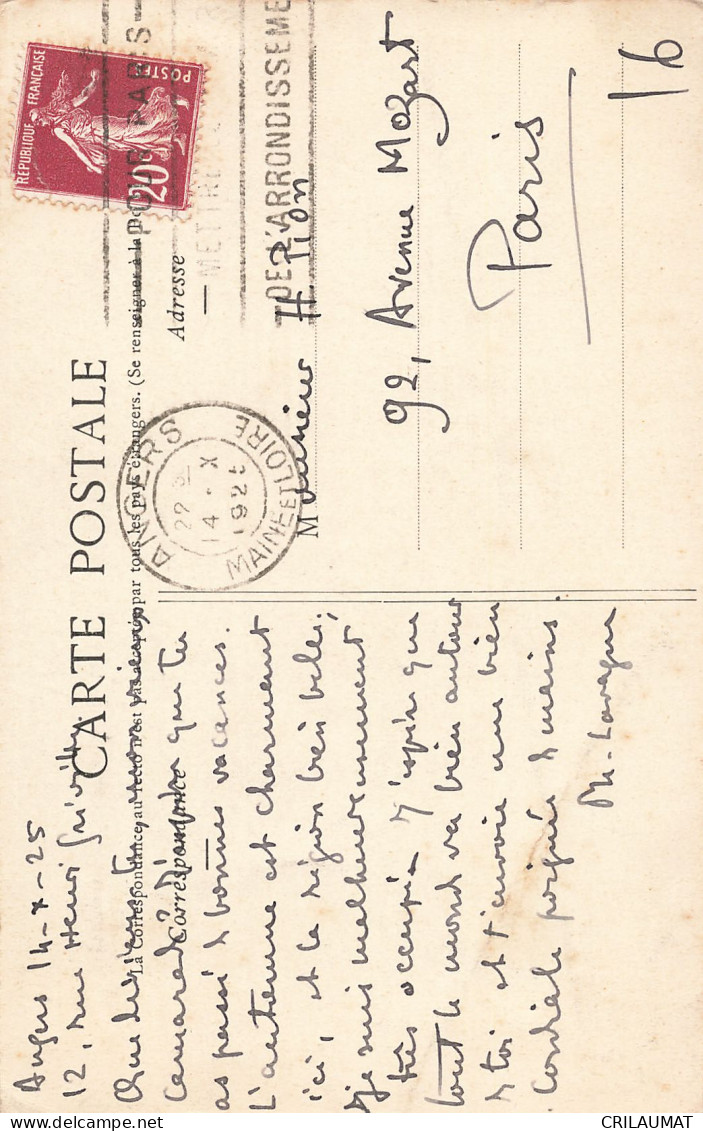 CARTE POSTALE
La Correspondance au recto n'est pas acceptée par tous les pays étrangers. (Se renseigner à la
Correspondance
Adresse
Angers 14-X-25
12, rue Henri
Que deviens-tu, mon vieux
camarade? J'espère que tu
as passé de bonnes vacances.
L'automne est charmant
ici, et la région très belle;
je suis malheureusement
très occupé. J'espère que
tout le monde va bien autour
de toi et t'envoie une bien
cordiale poignée de mains.
Ph. Lavagne
REPUBLIQUE FRANÇAISE
POSTES
20
POUR PARIS
METTRE
DE L'ARRONDISSEME
ANGERS
22
14 · X
1925
MAINE ET LOIRE
Monsieur H. Pion
92, Avenue Mozart
Paris
16
CRILAUMAT